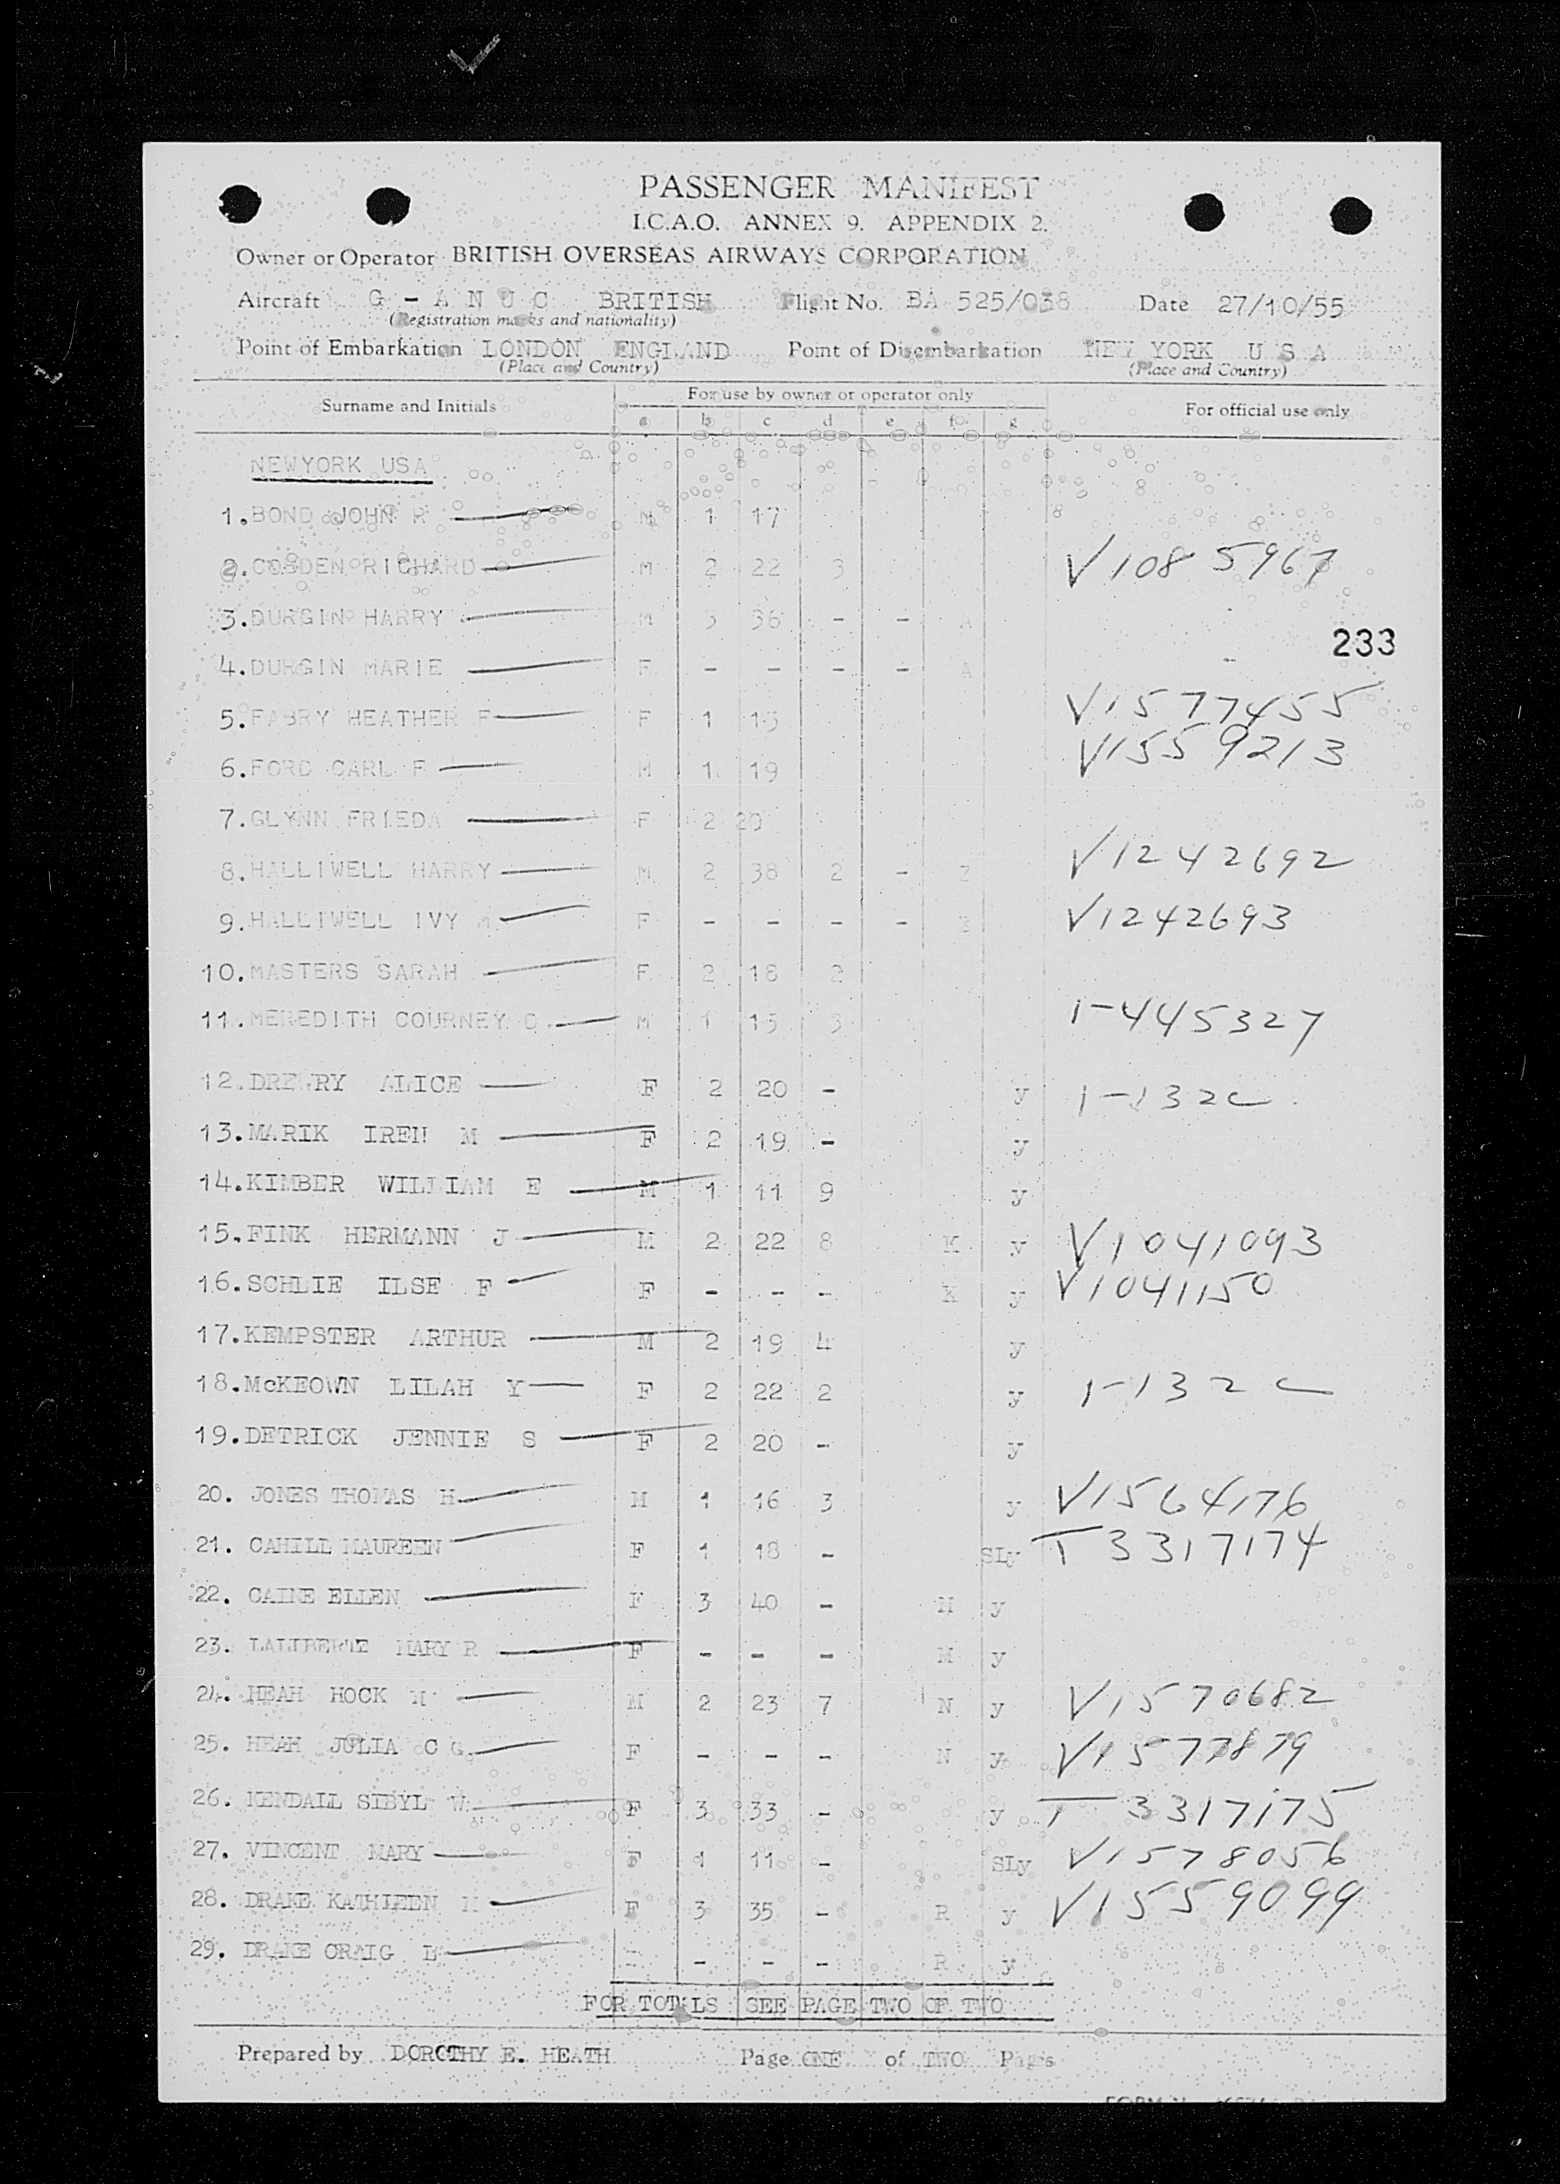 PASSENGER MANIFEST
I.C.A.O. ANNEX 9. APPENDIX 2.
Owner or Operator BRITISH OVERSEAS AIRWAYS CORPORATION
Aircraft G - A N U C BRITISH Flight No. BA 525/038 Date 27/10/55
(Registration marks and nationality)
Point of Embarkation LONDON ENGLAND Point of Disembarkation NEW YORK U S A
(Place and Country) (Place and Country)
Surname and Initials For use by owner or operator only For official use only
a b c d e f g
NEWYORK USA
1. BOND JOHN R M 1 17
2. COBDEN RICHARD M 2 22 3 V1085967
3. DURGIN HARRY M 3 36 - - A
233
4. DURGIN MARIE F - - - - A
5. FABRY HEATHER F F 1 13 V1577455
6. FORD CARL F M 1 19 V1559213
7. GLYNN FRIEDA F 2 20
8. HALLIWELL HARRY M 2 38 2 - V1242692
9. HALLIWELL IVY M F - - - - V1242693
10. MASTERS SARAH F 2 18 2
11. MEREDITH COURNEY M 1 15 3 1-445327
12. DREWRY ALICE F 2 20 - y 1-132c
13. MARIK IREN M F 2 19 - y
14. KIMBER WILLIAM E M 1 11 9 y
15. FINK HERMANN J M 2 22 8 K y V1041093
16. SCHLIE ILSE F F - - - K y V1041150
17. KEMPSTER ARTHUR M 2 19 4 y
18. McKEOWN LILAH Y F 2 22 2 y 1-132c
19. DETRICK JENNIE S F 2 20 - y
20. JONES THOMAS H M 1 16 3 y V1564176
21. CAHILL MAUREEN F 1 18 - SLy T3317174
22. CAINE ELLEN F 3 40 - M y
23. LALIBERTE MARY R F - - - M y
24. HEAH HOCK M 2 23 7 N y V1570682
25. HEAH JULIA C G F - - - N y V1577879
26. KENDALL SIBYL W F 3 33 - y T3317175
27. VINCENT MARY F 1 11 - SLy V1578056
28. DRAKE KATHLEEN M F 3 35 - R y V1559099
29. DRAKE CRAIG - - - - R y
FOR TOTALS SEE PAGE TWO OF TWO
Prepared by DOROTHY E. HEATH Page ONE of TWO Pages